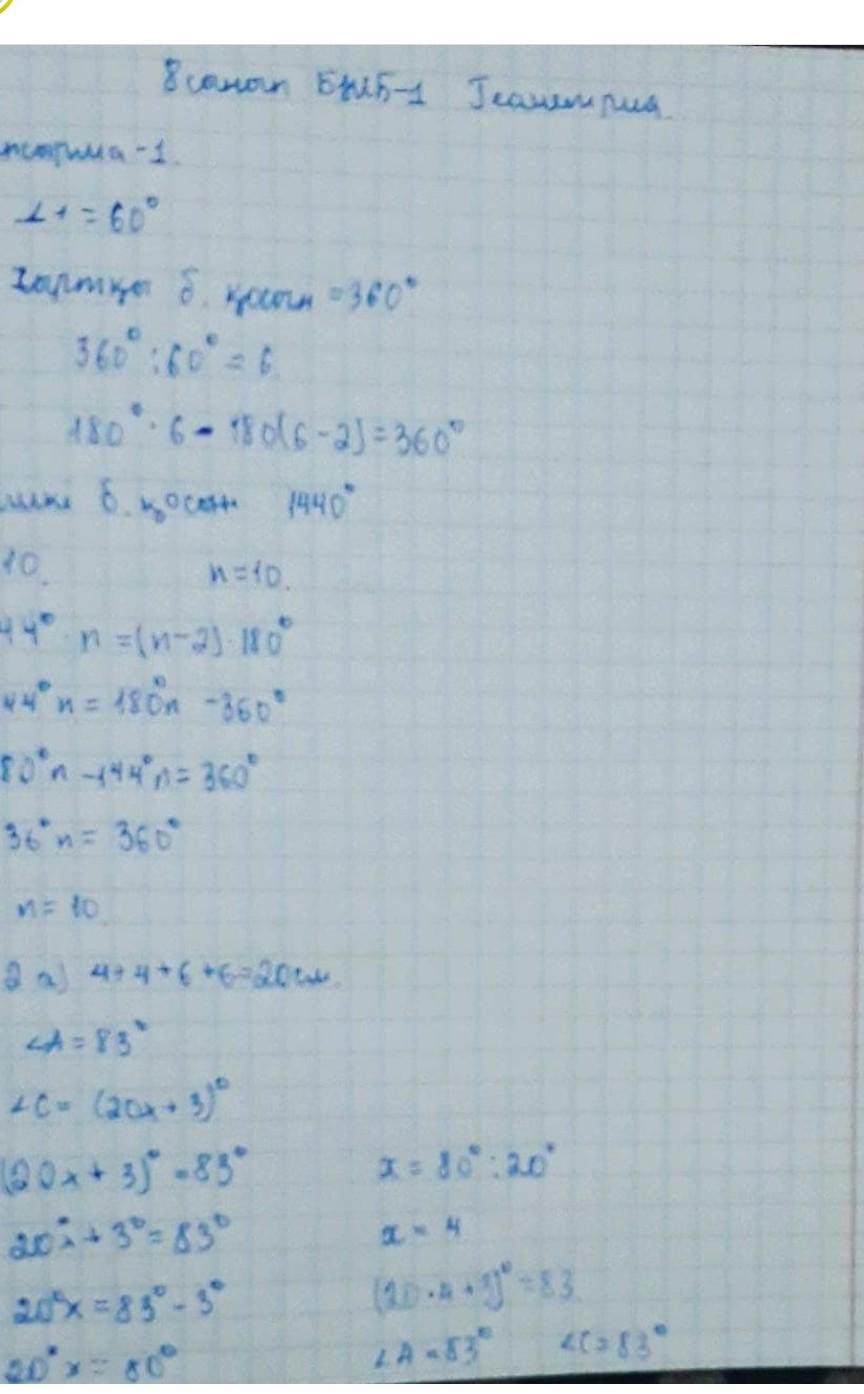 8 сынып БЖБ-1 Геометрия
псырма-1.
∠1=60°
Сыртқы б. қосын =360°
360°:60°=6
180°·6-180(6-2)=360°
б. қосын 1440°
10. n=10.
44°·n=(n-2)·180°
44°n=180°n-360°
80°n-144°n=360°
36°n=360°
n=10
2 а) 4+4+6+6=20см.
∠A=83°
∠C=(20x+3)°
(20x+3)°=83° x=80°:20°
20°x+3°=83° x=4
20°x=83°-3° (20·4+3)°=83
20°x=80° ∠A=83° ∠C=83°